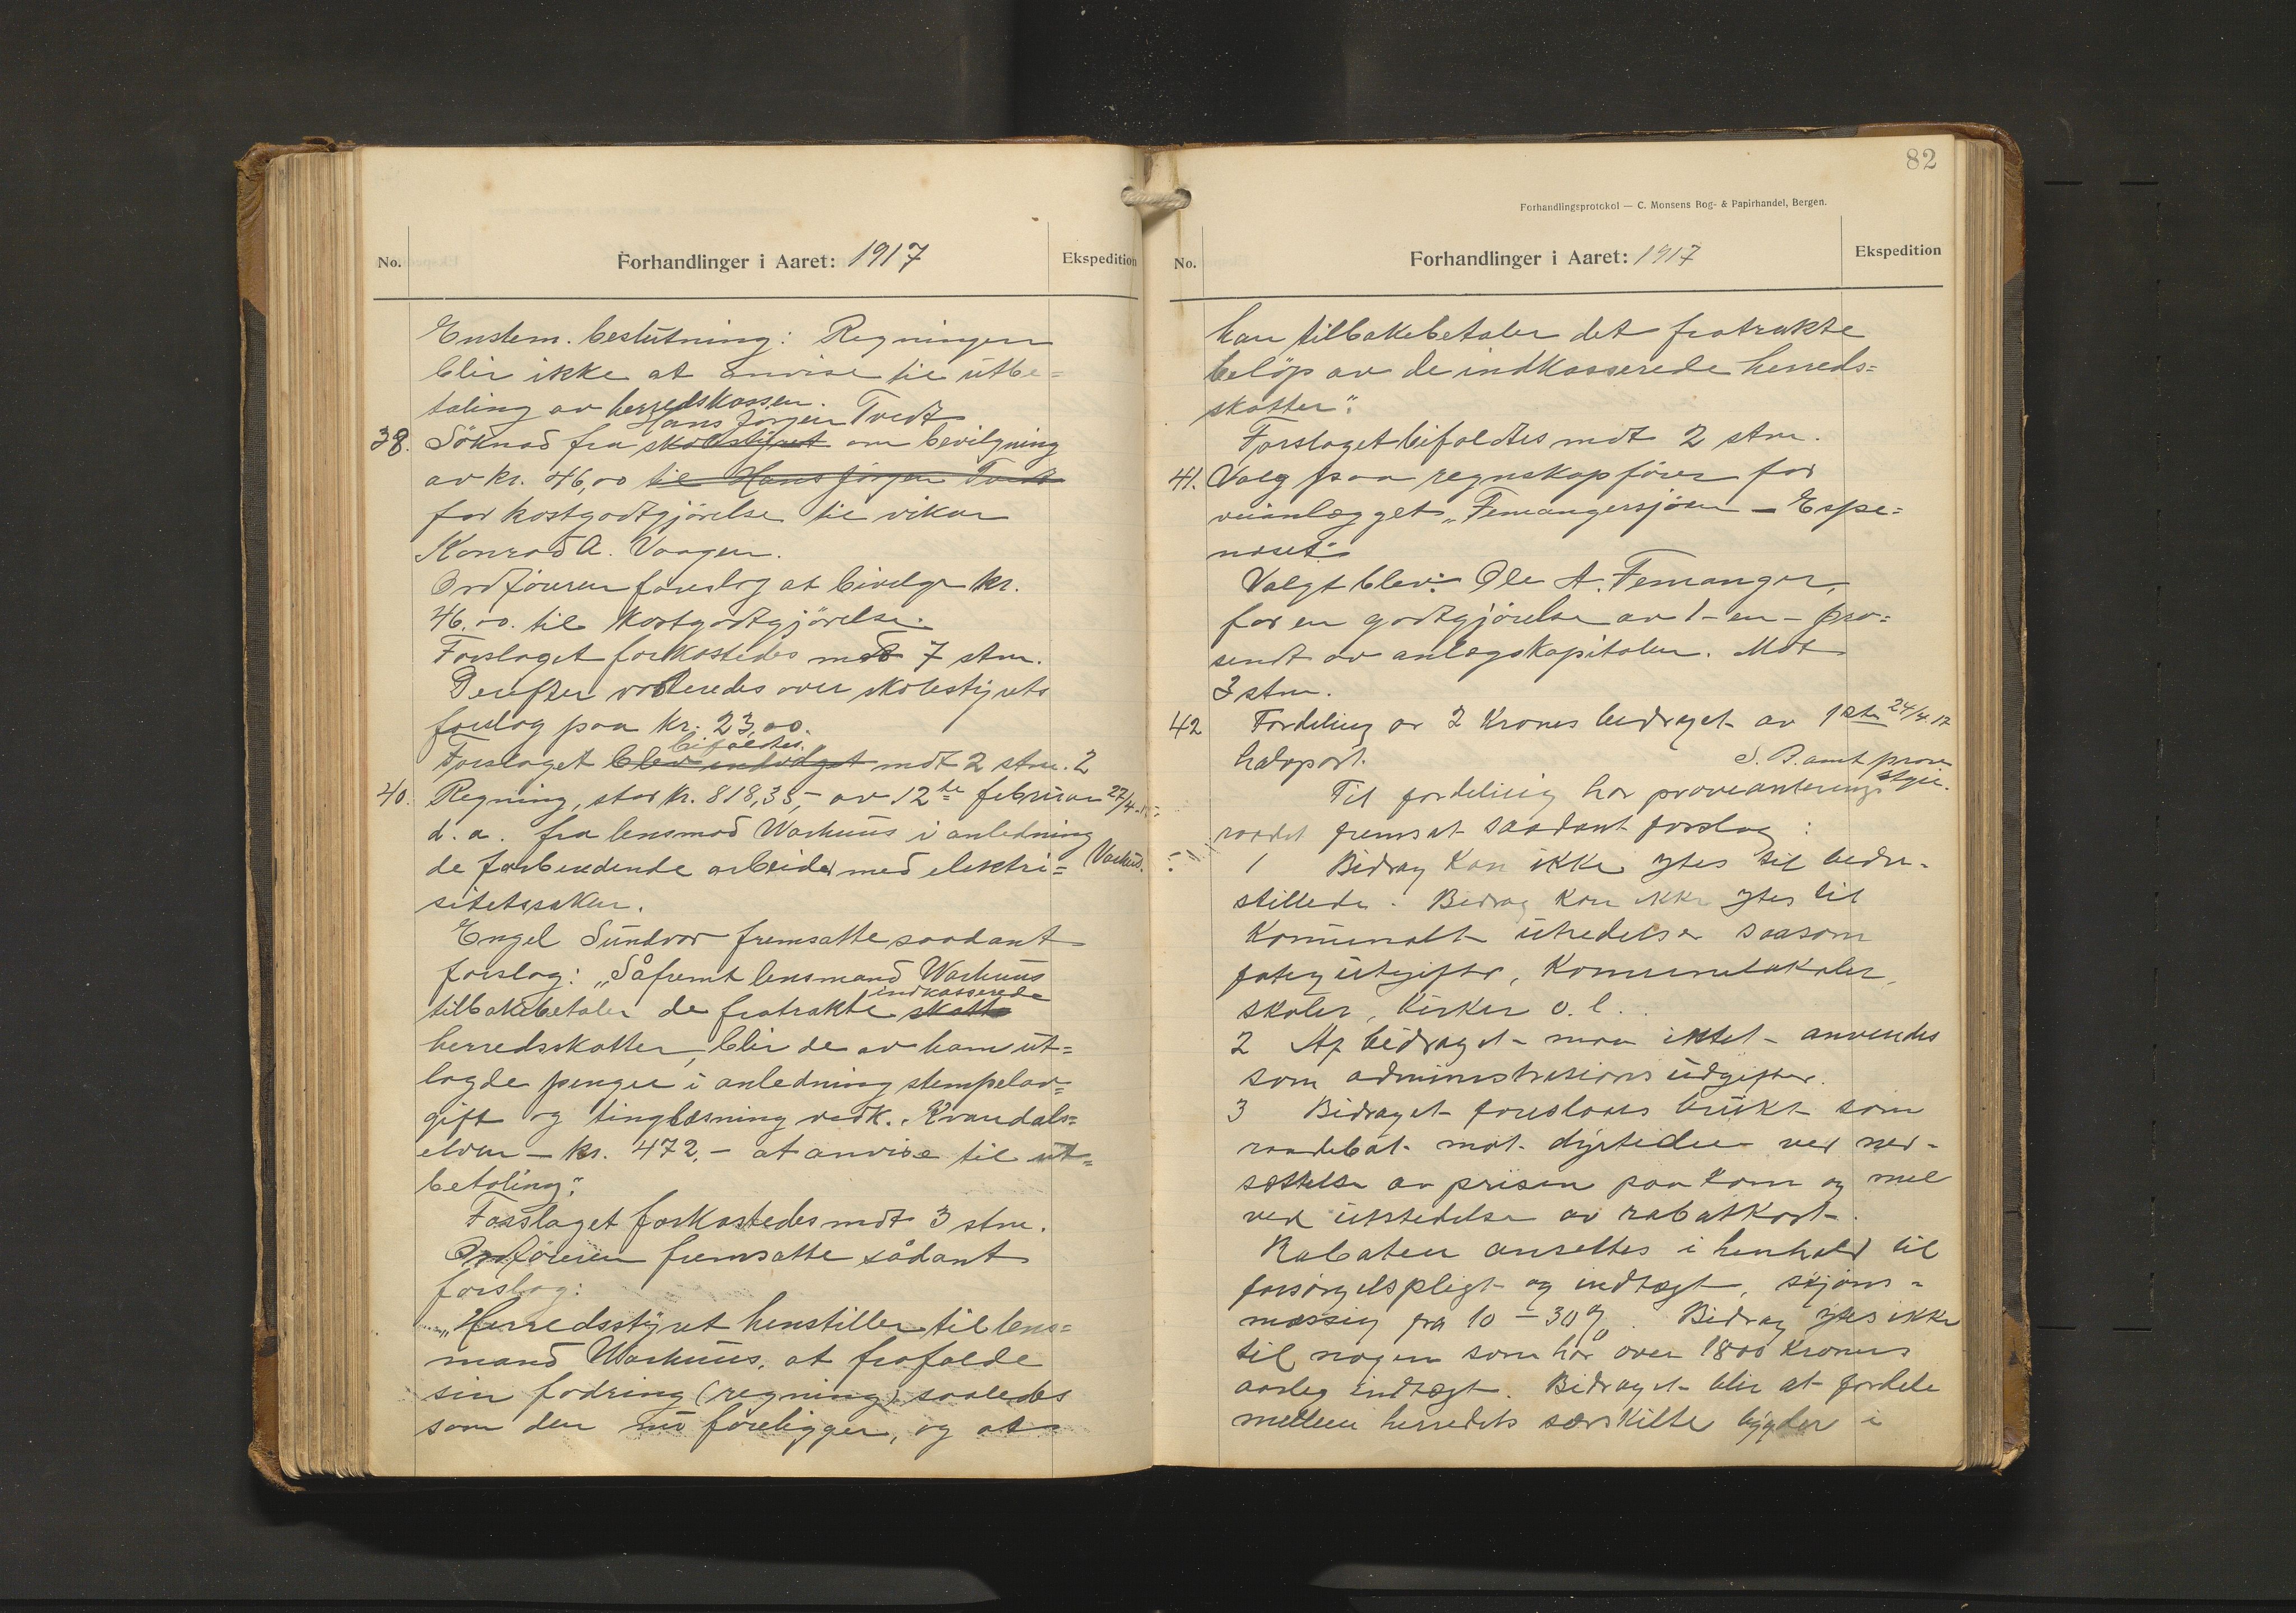 No.
Forhandlinger i Aaret: 1917
Ekspedition
Enstem. beslutning: Regningen
blir ikke at anvise til utbe=
taling av herredskassen.
Hans Jørgen Tvedt
38. Söknad fra skolestyret om bevilgning
av kr. 46,00 til Hans Jørgen Tvedt
for kostgodtgjörelse til vikar
Konrad A. Vaagen.
Ordföreren foreslog at bevilge kr.
46.00. til kostgodtgjörelse.
Forslaget forkastedes mot 7 stm.
Derefter voteredes over skolestyrets
forslag paa kr. 23,00.
bifaldtes.
Forslaget blev mot 2 stm. 2
40. Regning, stor kr. 818,35,- av 12te februar 27/4
d. a. fra lensmad Warhuus i anledning
de forberedende arbeider med elektri= Varhus.
sitetssaken.
Engel Sundvor fremsatte saadant
forslag: „Såfremt lensmand Warhuus
indkasserede
tilbakebetaler de fratrukte skatte
herredsskatter, blir de av ham ut=
lagde penger i anledning stempelav=
gift og tinglæsning vedk. Kvandals=
elven – kr. 472.- at anvise til ut=
betaling".
Forslaget forkastedes mot 3 stm.
Ordföreren fremsatte sådant
forslag:
„Herredsstyret henstiller til lens=
mand Warhuus, at frafalde
sin fodring (regning) saaledes
som den nu foreligger, og at
82
Forhandlingsprotokol — C. Monsens Bog- & Papirhandel, Bergen.
No.
Forhandlinger i Aaret: 1917
Ekspedition
han tilbakebetaler det fratrukte
belöp av de indkasserede herreds=
skatter".
Forslaget bifaldtes mot 2 stm.
41. Valg paa regnskapförer for
veianlægget „Femangersjöen – Espe=
neset"
Valgt blev: Ole A. Femanger,
for en godtgjörelse av 1 - en - pro=
sendt av anlægskapitalen. Mot
3 stm.
42 Fordeling av 2 Krones bidraget av 1ste 24/4.17
halvpart. S. B. amt prov
styr.
Til fordeling har provianterings
raadet fremsat saadant forslag:
1 Bidrag kan ikke ytes til bedre-
stillede. Bidrag kan ikke ytes til
Komunalt utredelser saasom
fatigutgifter, Komunelokaler,
skoler, kirker o. l.
2 Af bidraget maa intet anvendes
som administrasions udgifter.
3 Bidraget foreslaaes brukt som
raadebot mot dyrtiden ved ned-
sættelse av prisen paa korn og mel
ved utstedelse av rabatkort.
Rabaten ansettes i henhold til
forsørgelspligt og indtægt, skjøns-
mæssig fra 10 – 30%. Bidrag ytes ikke
til nogen som har over 1800 kroners
aarlig indtægt. Bidraget blir at fordele
mellem herredets særskilte bygder i